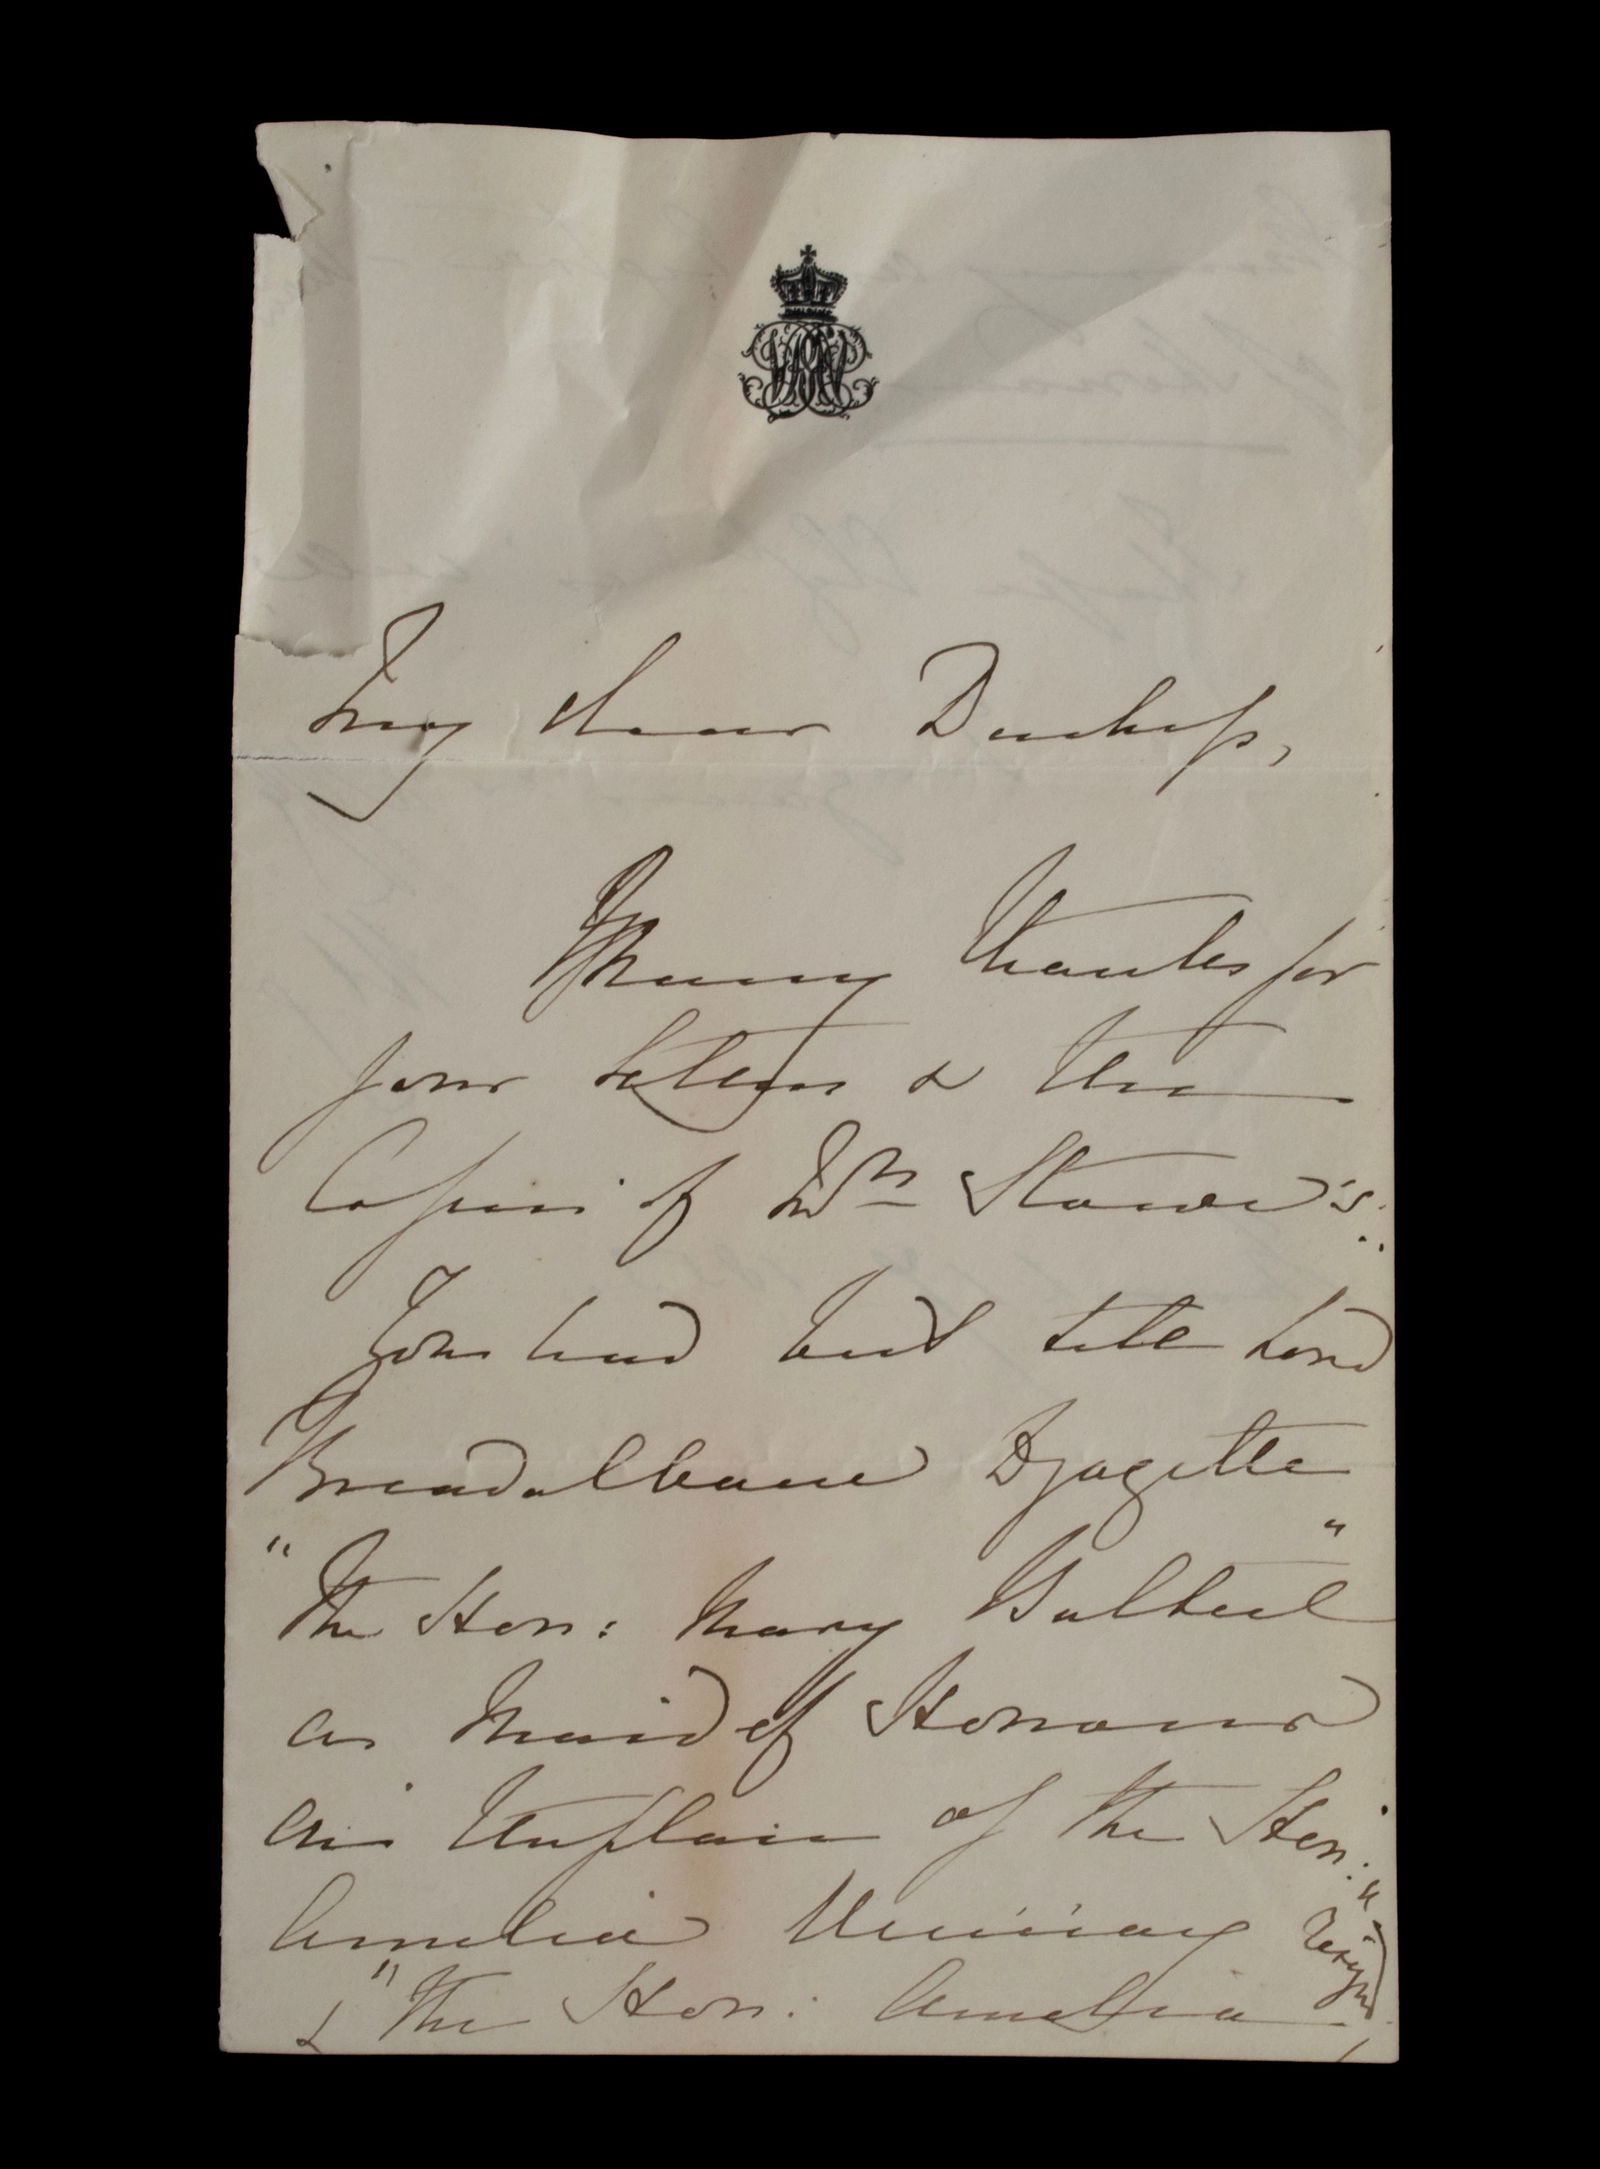 My dear Duchess,
Many thanks for
your letters & the
Copies of Mrs Stowe's.
You had best tell Lord
Breadalbane to gazette
"The Hon: Mary Bulteel"
as Maid of Honour
in the place of the Hon:
Amelia Murray "resigned"
& "the Hon: Amelia